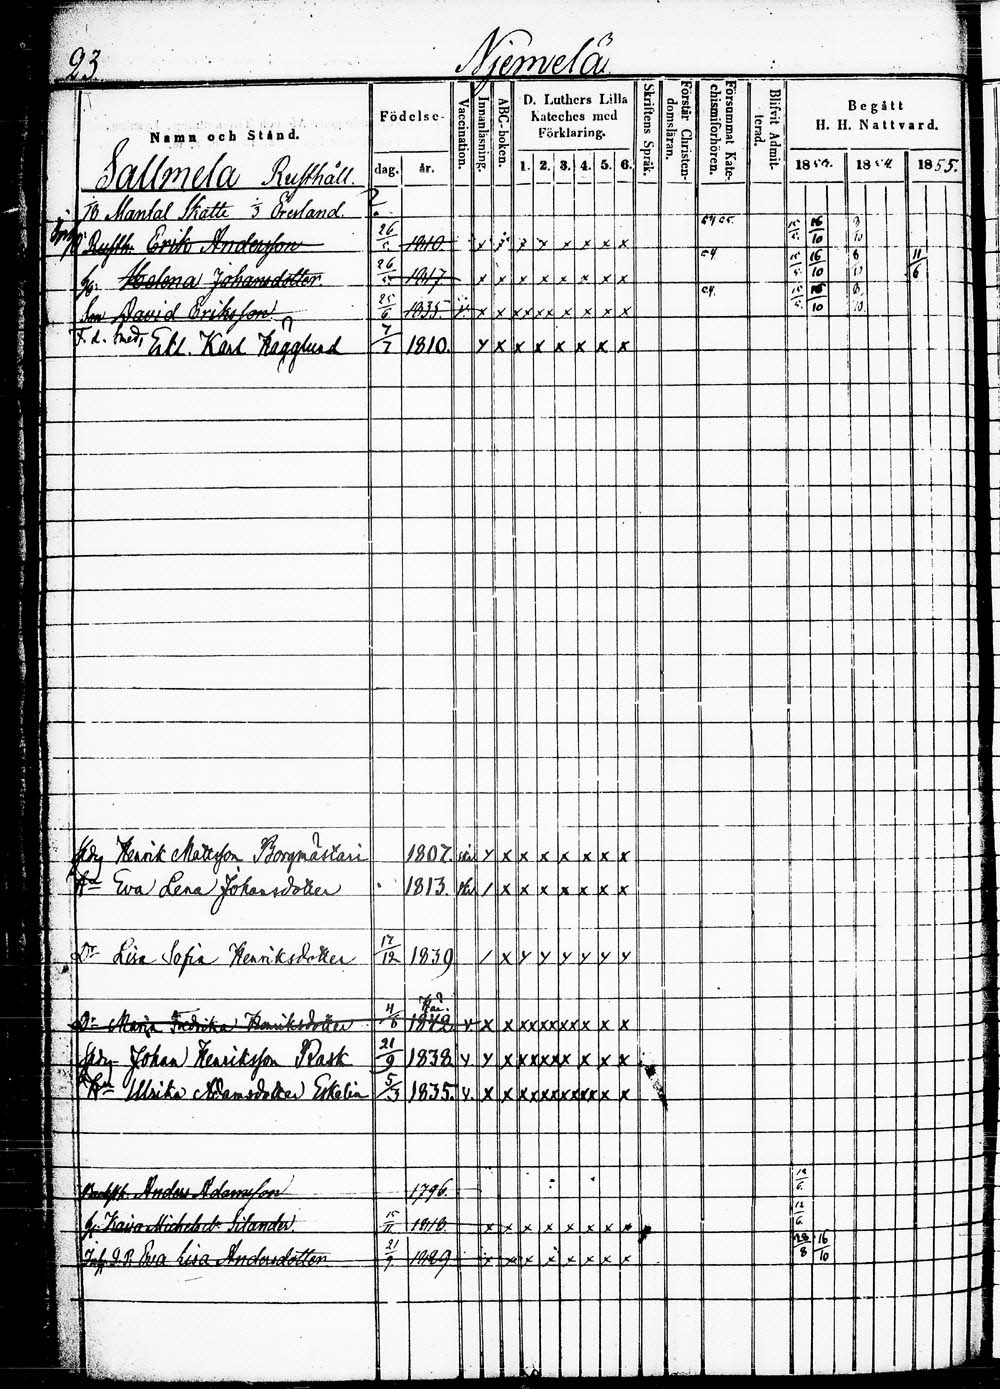 23
Njemelä
Namn och Stånd.
Födelse-
dag.
år.
Vaccination.
Innanläsning.
ABC-boken.
D. Luthers Lilla
Kateches med
Förklaring.
1. 2. 3. 4. 5. 6.
Skriftens Språk.
Förstår Christen-
domsläran.
Försummat Kate-
chismiförhören.
Blifvit Admit-
terad.
Begått
H. H. Nattvard.
1853. 1854. 1855.
Sallmela Rusthåll.
Mantal Skatte 1/3 Öresland.
Rusth. Erik Andersson 26/5 1810. x x x x x x x x 15/5 16/10
h. Helena Johansdotter 26/5 1817 x x x x x x x x 54 15/5 16/10 11/6
Son David Eriksson 25/6 1835 v. x x xx xx x x x x 54 15/5 16/10
F. d. smed, Karl Hägglund 7/7 1810. y x x x x x x x
Henrik Mattsson Borgmästari 1807. y x x x x x x x
Hu Eva Lena Johansdotter 1813. / x x x x x x x
Dr Lisa Sofia Henriksdotter 17/12 1839 / x y y y y y y
Dr Maria Fredrika Henriksdotter 4/8 1842 v x x xx xx xx x x x
Johan Henriksson Rask 21/9 1838 v y x xx xx x x x x
Hu Ulrika Adamsdotter Eskelin 5/3 1835. v. x x xx xx xx xx x x
Anders Adamsson 1796. 12/6
h. Kaisa Michelsdr Silander 15/11 1810 x x x x x x x x 12/6
Eva Lisa Andersdotter 21/9 1829 x x x x x x x x 28/8 16/10